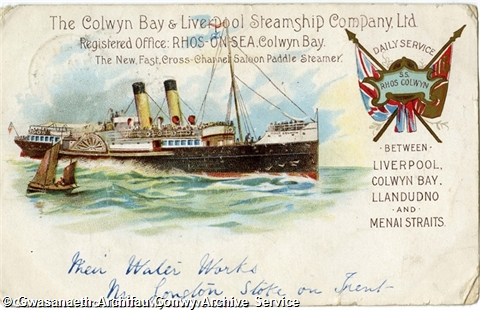 The Colwyn Bay & Liverpool Steamship Company, Ltd
Registered Office: RHOS-ON-SEA. Colwyn Bay.
The New, Fast, Cross-Channel Saloon Paddle Steamer.
DAILY SERVICE
S.S.
RHOS COLWYN
- BETWEEN -
LIVERPOOL,
COLWYN BAY,
LLANDUDNO
- AND -
MENAI STRAITS.
Meir Water Works
Nr Longton Stoke on Trent
© Gwasanaeth Archifau Conwy Archive Service